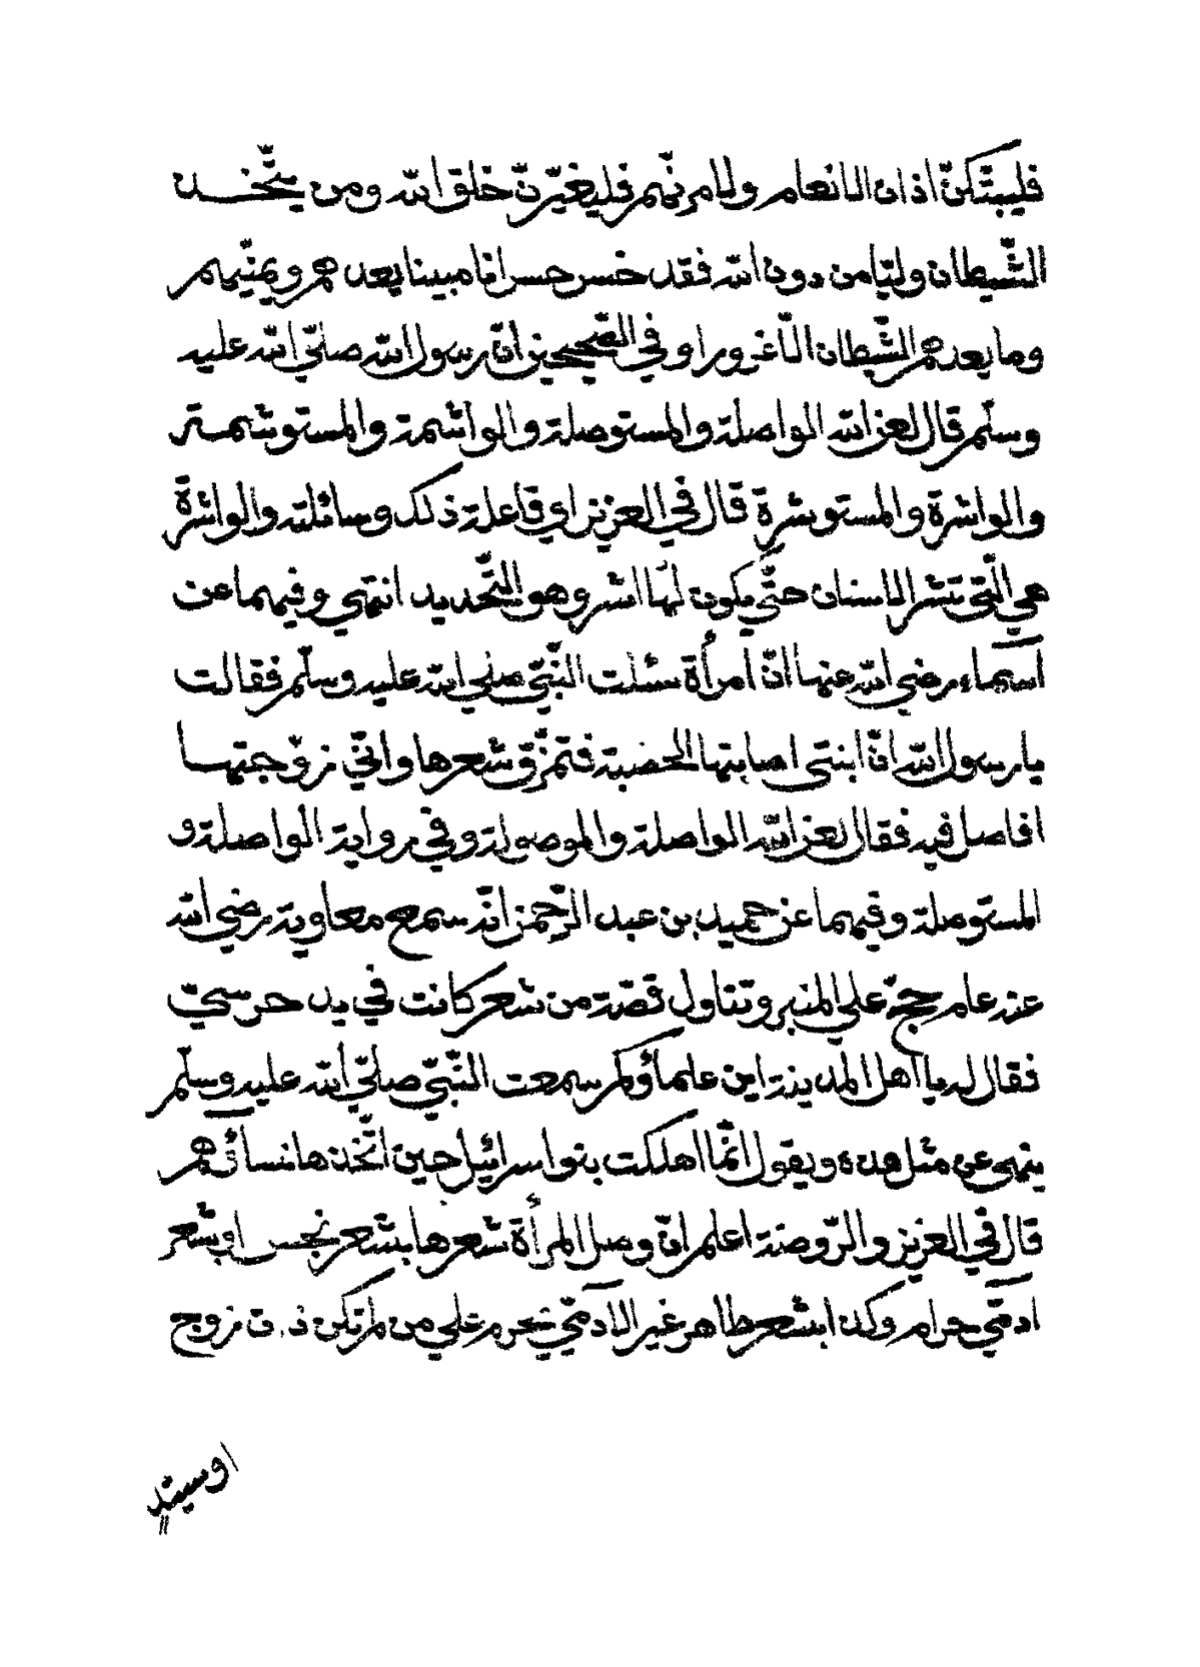 فليبتّكنّ اذان الانعام ولامرنّهم فليغيّرنّ خلق الله ومن يتّخــذ
الشّيطان وليّا من دون الله فقد خسر خسرانا مبينا يعدهم ويمنّيهم
وما يعدهم الشّيطان الّا غرورا وفي الصّحيحين انّ رسول الله صلّي الله عليه
وسلّم قال لعن الله الواصلة والمستوصلة والواشمة والمستوشمــة
والواشرة والمستوشرة قال في العزيز اي فاعلة ذلك وسائلته والواشرة
هي الّتي تشر الاسنان حتّي يكون لها اشر وهو التّحديد انتهي وفيهما عن
أسماء رضي الله عنها انّ امرأة سئلت النّبيّ صلي الله عليه وسلّم فقالت
يا رسول الله انّ ابنتي اصابتها الحصبة فتمزّق شعرها وانّي زوّجتهــا
افاصل فيه فقال لعن الله الواصلة والموصولة وفي رواية الواصلة و
المستوصلة وفيهما عن حميد بن عبد الرّحمن انّه سمع معاوية رضي الله
عنه عام حجّ علي المنبر وتناول قصّة من شعر كانت في يد حرسيّ
فقال له يا اهل المدينة اين علماؤكم سمعت النّبيّ صلّي الله عليه وسلّم
ينهي عن مثل هذه ويقول انّما اهلكت بنوا سرائيل حين اتّخذها نسآؤهم
قال في العزيز والرّوضة اعلم انّ وصل المرأة شعرها بشعر نجس او بشعر
ادمّي حرام وكذا بشعر طاهر غير الادمّي يحرم علي من لم تكن ذات زوج
او سيّد